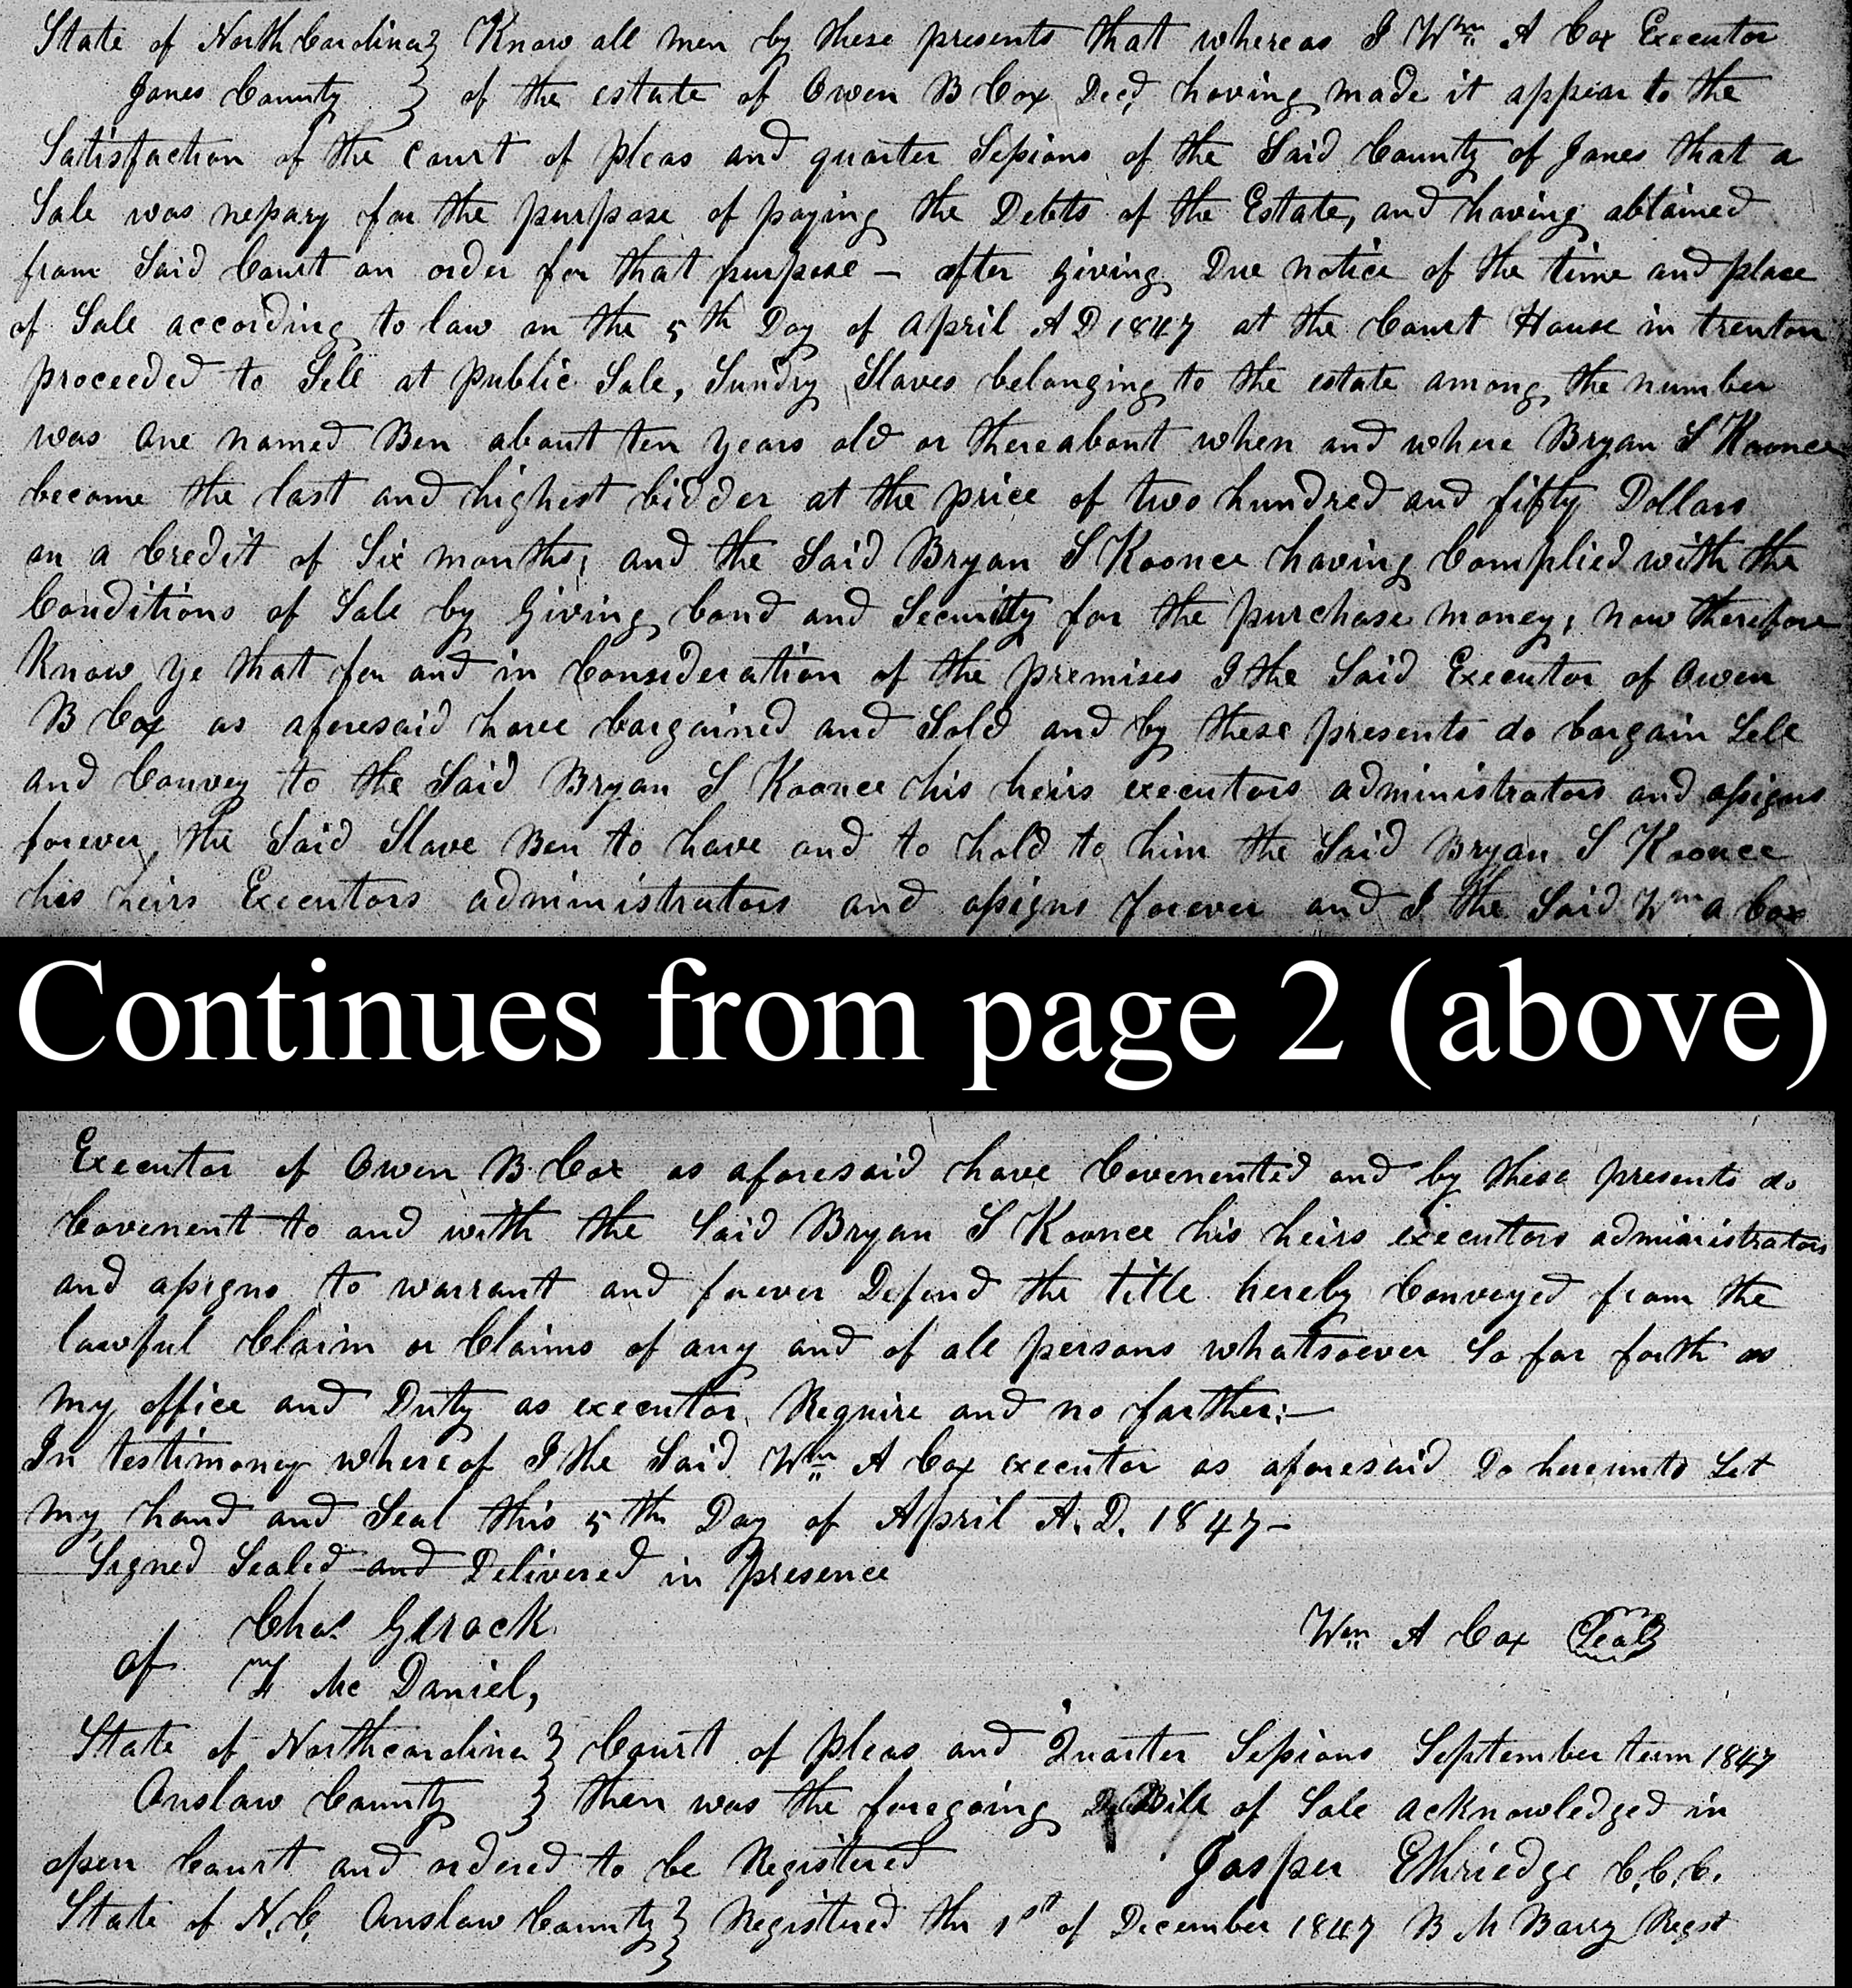 State of North Carolina } Know all men by these presents that whereas I Wm A Cox Executor
Jones County } of the estate of Owen B Cox Decd, having made it appear to the
Satisfaction of the court of pleas and quarter Sessions of the Said County of Jones that a
Sale was nessary for the purpose of paying the Debts of the Estate, and having obtained
from Said Court an order for that purpose – after giving Due notice of the time and place
of Sale according to law on the 5th Day of april A D 1847 at the Court House in trenton
proceeded to Sell at public Sale, Sundry Slaves belonging to the estate among the number
was one named Ben about ten years old or thereabout when and where Bryan S Koonce
became the last and highest bidder at the price of two hundred and fifty Dollars
on a Credit of Six months; and the Said Bryan S Koonce having Complied with the
Conditions of Sale by giving bond and Security for the purchase money; now therefore
Know ye that for and in Consideration of the premises I the Said Executor of Owen
B Cox as aforesaid have bargained and Sold and by these presents do bargain Sell
and Convey to the Said Bryan S Koonce his heirs executors administrators and assigns
forever, the Said Slave Ben to have and to hold to him the Said Bryan S Koonce
his heirs Executors administrators and assigns forever and I the Said Wm a Cox
Continues from page 2 (above)
Executor of Owen B Cox as aforesaid have Covenented and by these presents do
Covenent to and with the Said Bryan S Koonce his heirs executors administrators
and assigns to warrant and forever Defend the title hereby Conveyed from the
lawful Claim or Claims of any and of all persons whatsoever So far forth as
my office and Duty as executor Require and no farther:—
In testimoney whereof I the Said Wm A Cox executor as aforesaid Do hereunto Set
my hand and Seal this 5th Day of April A.D. 1847–
Signed Sealed and Delivered in presence
Chas Gerock
of Wm A Cox Seal
Mc Daniel,
State of Northcarolina } Court of pleas and Quarter Sessions September term 1847
Onslow County } then was the foregoing Bill of Sale acknowledged in
open Court and ordered to be Registered Jasper Ethriedge C.C.C.
State of N.C. Onslow County } Registered the 1st of December 1847 B M Barry Regst